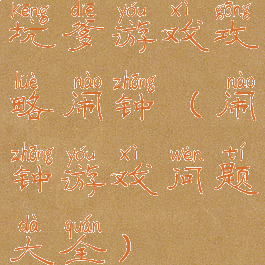 kēng diē yóu xì gōng
坑爹游戏攻
lüè nào zhōng nào
略闹钟（闹
zhōng yóu xì wèn tí
钟游戏问题
dà quán
大全）